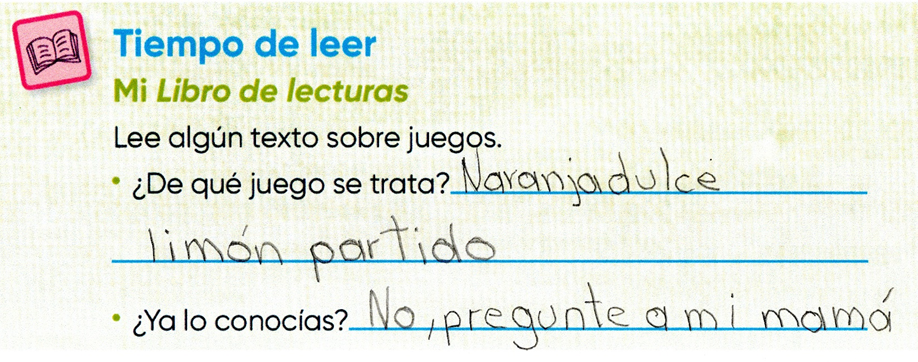 Tiempo de leer
Mi Libro de lecturas
Lee algún texto sobre juegos.
• ¿De qué juego se trata? Naranja dulce
limón partido
• ¿Ya lo conocías? No, pregunte a mi mamá